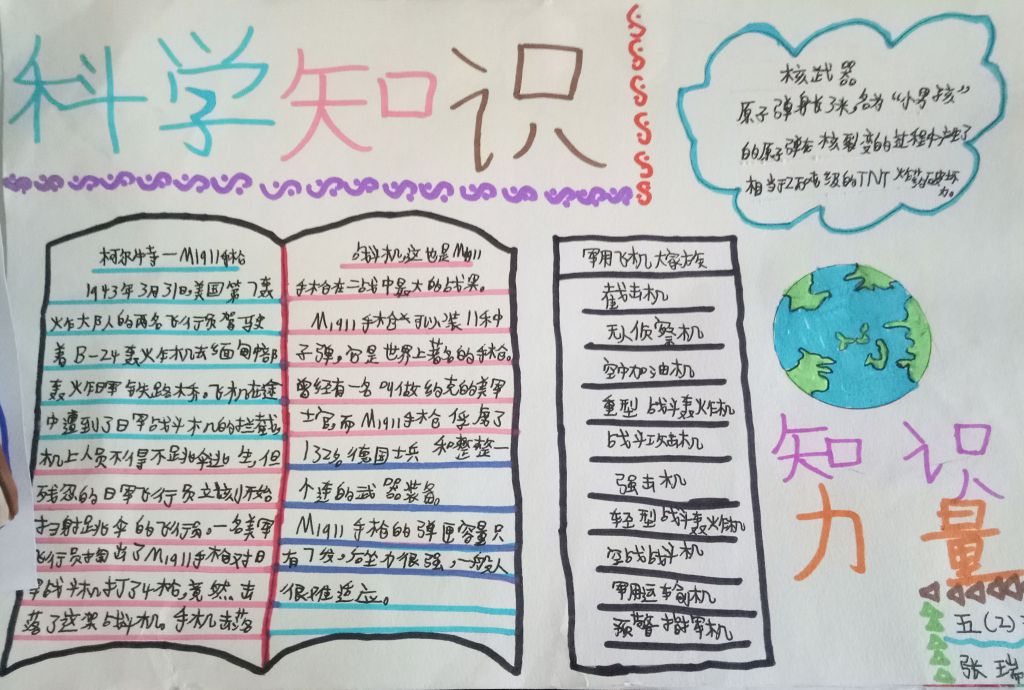 科学知识
核武器
原子弹射长了来,名为“小男孩”
的原子弹在核裂变的过程中产生了
相当于2万吨级的TNT炸药破坏
力。
柯尔特—M1911手枪
1943年3月31日,美国第7轰
炸大队的两名飞行员驾驶
着B-24轰炸机去缅甸
轰炸日军铁路桥。飞机在途
中遭到了日军战斗机的拦截
机上人员不得不跳伞逃生,但
残忍的日军飞行员立刻开始
扫射跳伞的飞行员。一名美军
飞行员掏出了M1911手枪对日
军战斗机打了4枪,竟然击
落了这架战斗机。手机击落
战斗机,这也是M1911
手枪在二战中最大的战果。
M1911手枪可以装11种
子弹,它是世界上著名的手枪。
曾经有一名叫做约克的美军
士官用M1911手枪俘虏了
132名德国士兵和整整一
个连的武器装备。
M1911手枪的弹匣容量只
有7发,后坐力很强,一般人
很难适应。
军用飞机大家族
截击机
无人侦察机
空中加油机
重型战斗轰炸机
战斗攻击机
强击机
轻型战斗轰炸机
空战战斗机
军用运输机
预警指挥机
知识
力量
五(2)
张瑞